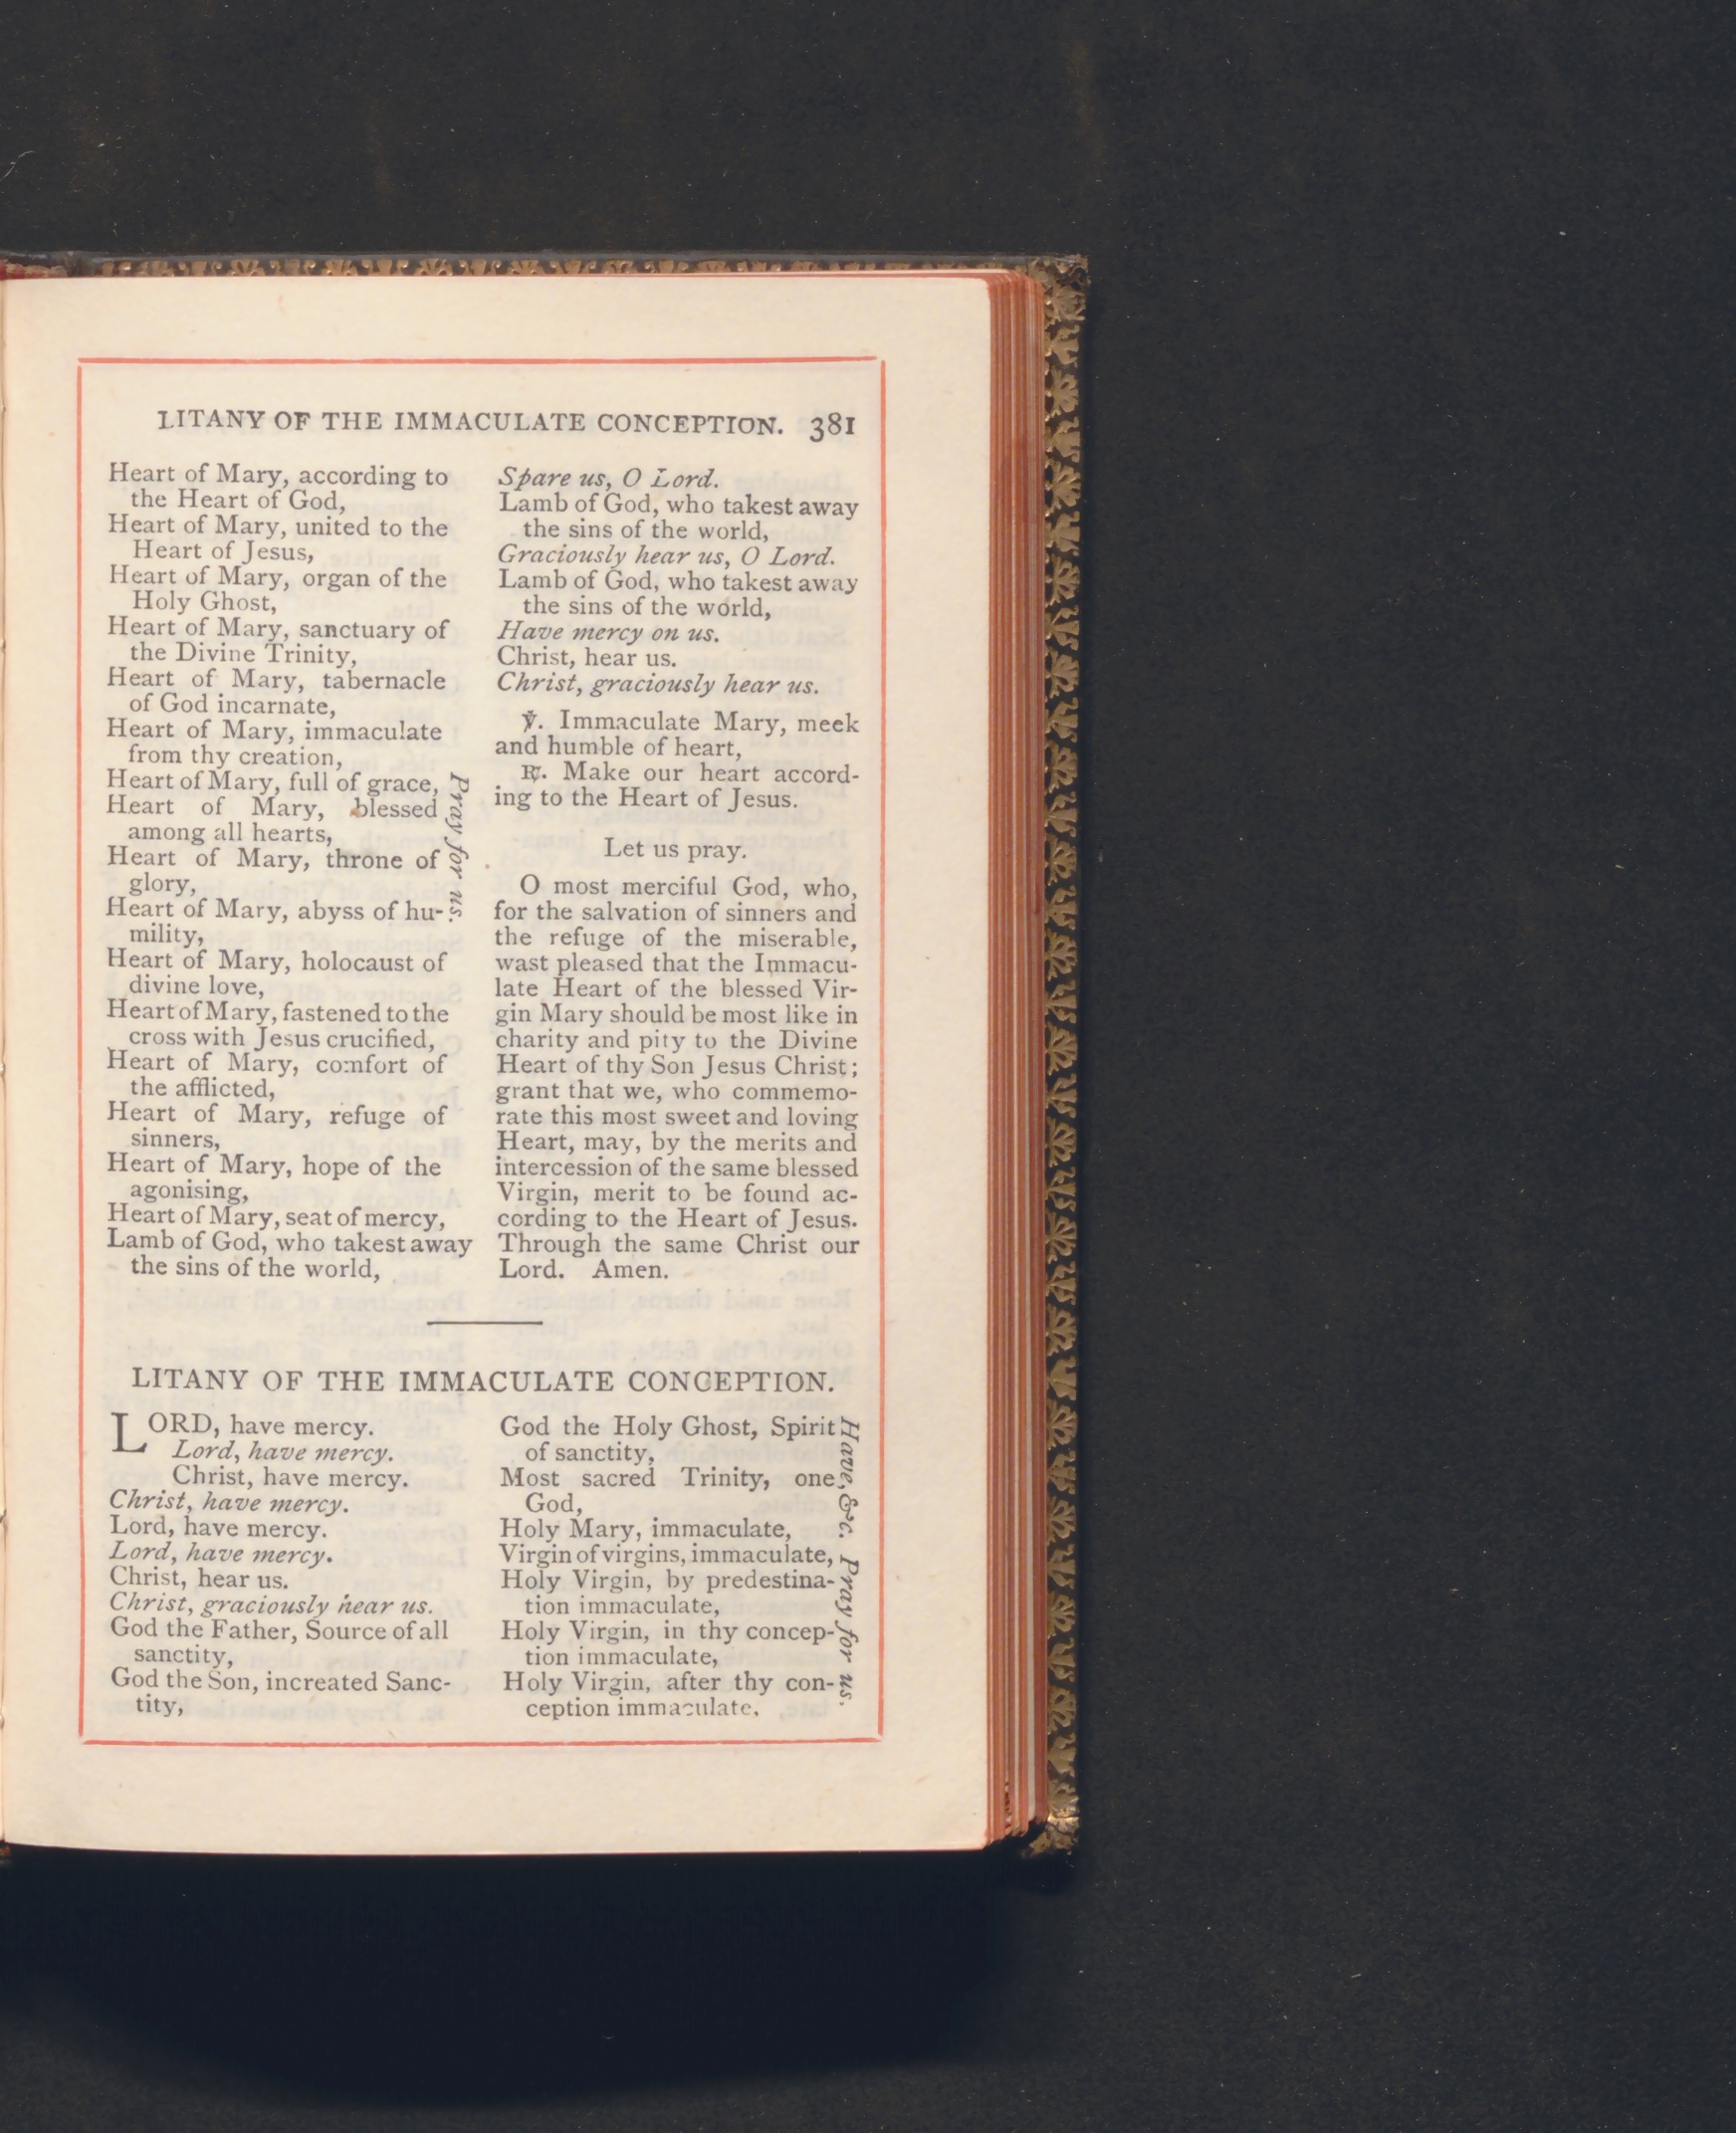 LITANY OF THE IMMACULATE CONCEPTION. 381
Heart of Mary, according to
the Heart of God,
Heart of Mary, united to the
Heart of Jesus,
Heart of Mary, organ of the
Holy Ghost,
Heart of Mary, sanctuary of
the Divine Trinity,
Heart of Mary, tabernacle
of God incarnate,
Heart of Mary, immaculate
from thy creation,
Heart of Mary, full of grace,
Heart of Mary, blessed
among all hearts,
Heart of Mary, throne of
glory,
Heart of Mary, abyss of hu-
mility,
Heart of Mary, holocaust of
divine love,
Heart of Mary, fastened to the
cross with Jesus crucified,
Heart of Mary, comfort of
the afflicted,
Heart of Mary, refuge of
sinners,
Heart of Mary, hope of the
agonising,
Heart of Mary, seat of mercy,
Pray for us.
Lamb of God, who takest away
the sins of the world,
Spare us, O Lord.
Lamb of God, who takest away
the sins of the world,
Graciously hear us, O Lord.
Lamb of God, who takest away
the sins of the world,
Have mercy on us.
Christ, hear us.
Christ, graciously hear us.
℣. Immaculate Mary, meek
and humble of heart,
℟. Make our heart accord-
ing to the Heart of Jesus.
Let us pray.
O most merciful God, who,
for the salvation of sinners and
the refuge of the miserable,
wast pleased that the Immacu-
late Heart of the blessed Vir-
gin Mary should be most like in
charity and pity to the Divine
Heart of thy Son Jesus Christ;
grant that we, who commemo-
rate this most sweet and loving
Heart, may, by the merits and
intercession of the same blessed
Virgin, merit to be found ac-
cording to the Heart of Jesus.
Through the same Christ our
Lord. Amen.
LITANY OF THE IMMACULATE CONCEPTION.
LORD, have mercy.
Lord, have mercy.
Christ, have mercy.
Christ, have mercy.
Lord, have mercy.
Lord, have mercy.
Christ, hear us.
Christ, graciously hear us.
God the Father, Source of all
sanctity,
God the Son, increated Sanc-
tity,
God the Holy Ghost, Spirit
of sanctity,
Most sacred Trinity, one
God,
Have, &c.
Holy Mary, immaculate,
Virgin of virgins, immaculate,
Holy Virgin, by predestina-
tion immaculate,
Holy Virgin, in thy concep-
tion immaculate,
Holy Virgin, after thy con-
ception immaculate,
Pray for us.